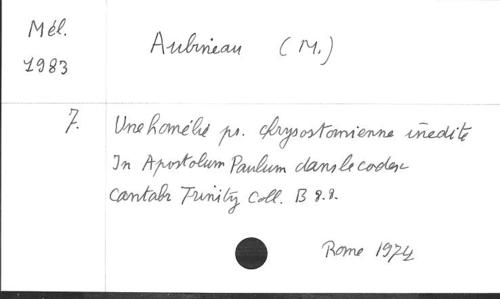 Mél.
1983
Aubineau (M.)
7.
Une homélie ps. chrysostomienne inédite
In Apostolum Paulum dans le codex
Cantabr Trinity Coll. B 8.8.
Rome 1974